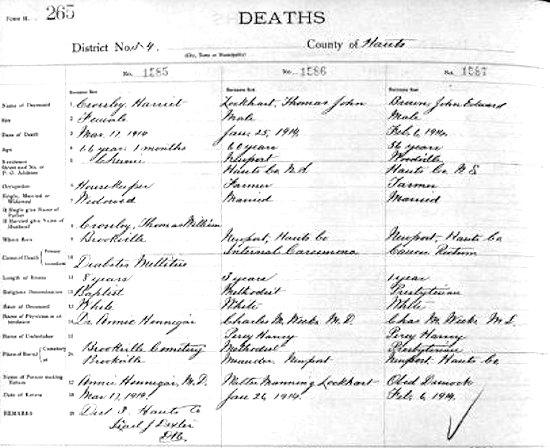 Form H. 265 DEATHS
District No. 54. County of Hants
(City, Town or Municipality)
No. 1585 No. 1586 No. 1587
Name of Deceased Crossley, Harriet Lockhart, Thomas John Brown, John Edward
Sex Female Male Male
Date of Death Mar. 17, 1914 Jan. 25, 1914. Feb. 6, 1914.
Age 66 years 1 months 66 years 56 years
Residence Newport Woodville
Street and No. or P. O. Address Hants Co N.S. Hants Co N.S.
Occupation Housekeeper Farmer Farmer
Single, Married or Widowed Widowed Married Married
If Single give Name of Father
If Married give Name of Husband Crossley, Thomas William
Where Born Brookville Newport, Hants Co Newport, Hants Co
Cause of Death Internal Carcinoma Cancer Rectum
Diabetes Mellitus
Length of Illness 8 years 3 years 1 year
Religious Denomination Baptist Methodist Presbyterian
Race of Deceased White White White
Name of Physician in attendance Dr. Annie Hennigar Charles M. Weeks M.D. Chas M. Weeks M.D.
Name of Undertaker Percy Harvey Percy Harvey
Place of Burial Cemetery Brookville Cemetery Methodist Presbyterian
Brookville Newport Newport, Hants Co.
Name of Person making Return Annie Hennigar, M.D. Manning Lockhart Obed
Date of Return Mar. 17, 1914. Jan 26, 1914. Feb. 6, 1914.
REMARKS Dist 3. Hants Co